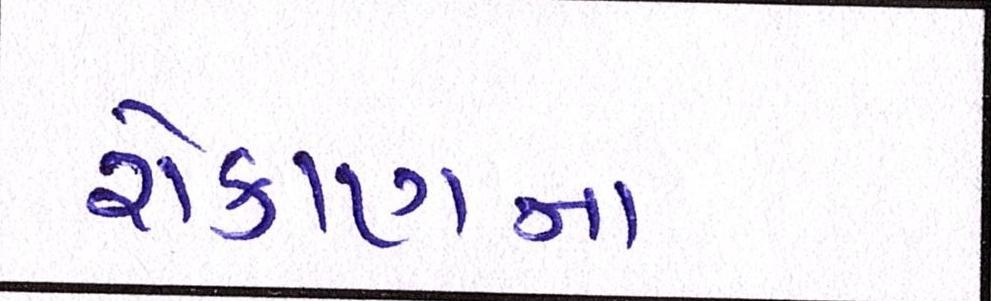 રોકાણના